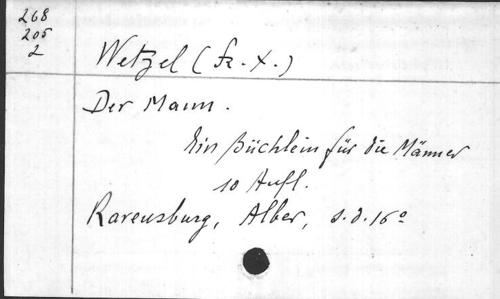 268
205
2
Wetzel (Fr. X.)
Der Mann.
Ein Büchlein für die Männer
10 Aufl.
Ravensburg, Alber, s.d. 16°